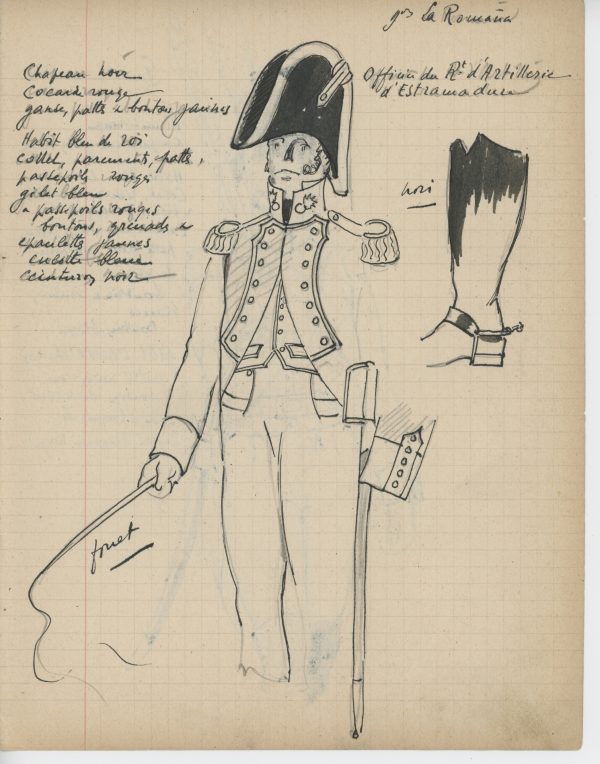 gon La Romaña
Officier du Rt d'Artillerie
d'Estramadure
Chapeau noir
Cocarde rouge
ganse, patte & boutons jaunes
Habit bleu de roi
collet, parements, patte,
passepoils rouges
gilet bleu
à passepoils rouges
boutons, grenades &
epaulettes jaunes
culotte bleue
ceinturon noir
noir
fouet